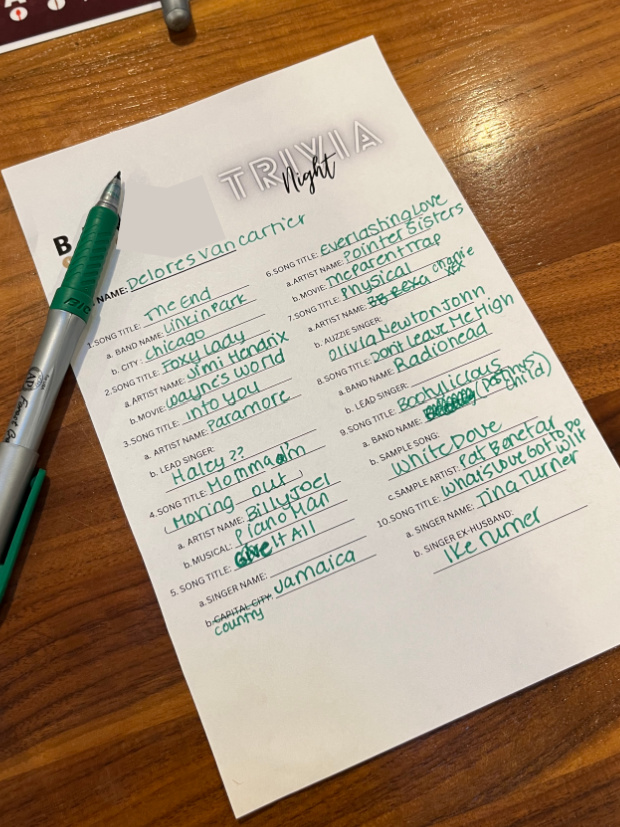 TRIVIA
Night
B
NAME: Delores Van Cartier
1. SONG TITLE: The End
a. BAND NAME: Linkin Park
b. CITY: Chicago
2. SONG TITLE: Foxy Lady
a. ARTIST NAME: Jimi Hendrix
b. MOVIE: Wayne's World
3. SONG TITLE: Into You
a. ARTIST NAME: Paramore
b. LEAD SINGER:
Haley ??
4. SONG TITLE: Momma I'm
Moving out
a. ARTIST NAME: Billy Joel
b. MUSICAL: Piano Man
5. SONG TITLE: Give It All
a. SINGER NAME:
b. CAPITAL CITY: Jamaica
country
6. SONG TITLE: Everlasting Love
a. ARTIST NAME: Pointer Sisters
b. MOVIE: The Parent Trap
7. SONG TITLE: Physical
a. ARTIST NAME: Rexa Charlie
XCX
b. AUZZIE SINGER:
Olivia Newton John
8. SONG TITLE: Don't Leave Me High
a. BAND NAME: Radiohead
b. LEAD SINGER:
9. SONG TITLE: Bootylicious
a. BAND NAME: (Destiny's
Child)
b. SAMPLE SONG:
White Dove
c. SAMPLE ARTIST: Pat Benetar
10. SONG TITLE: What's Love Got To Do
W/ It
a. SINGER NAME: Tina Turner
b. SINGER EX-HUSBAND:
Ike Turner